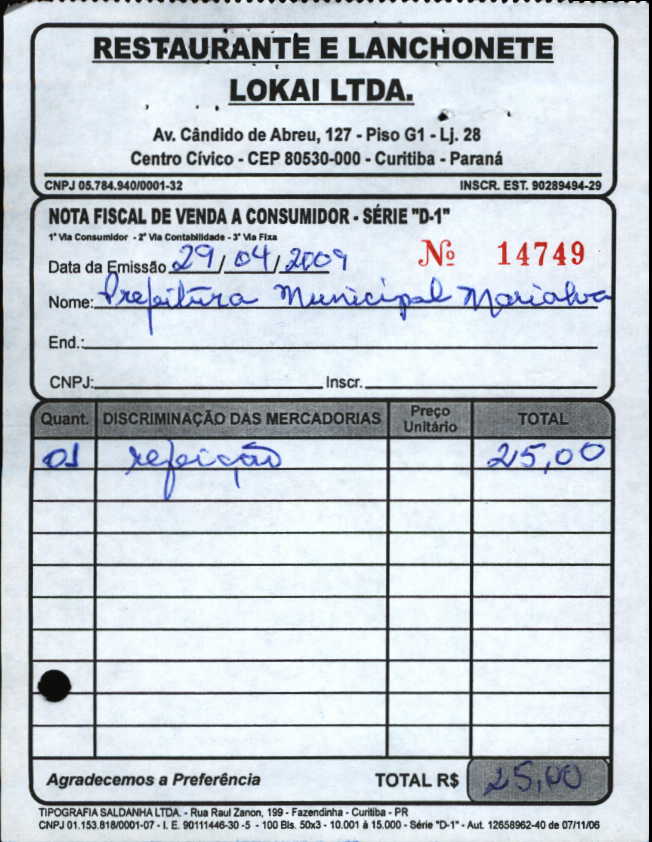 RESTAURANTE E LANCHONETE
LOKAI LTDA.
Av. Cândido de Abreu, 127 - Piso G1 - Lj. 28
Centro Cívico - CEP 80530-000 - Curitiba - Paraná
CNPJ 05.784.940/0001-32 INSCR. EST. 90289494-29
NOTA FISCAL DE VENDA A CONSUMIDOR - SÉRIE "D-1"
1ª Via Consumidor - 2ª Via Contabilidade - 3ª Via Fixa
Data da Emissão 29/04/2009 Nº 14749
Nome: Prefeitura Municipal Marialva
End.:
CNPJ: Inscr.
Quant. DISCRIMINAÇÃO DAS MERCADORIAS Preço Unitário TOTAL
01 refeição 25,00
Agradecemos a Preferência TOTAL R$ 25,00
TIPOGRAFIA SALDANHA LTDA. - Rua Raul Zanon, 199 - Fazendinha - Curitiba - PR
CNPJ 01.153.818/0001-07 - I. E. 90111446-30 -5 - 100 Bls. 50x3 - 10.001 à 15.000 - Série "D-1" - Aut. 12658962-40 de 07/11/06